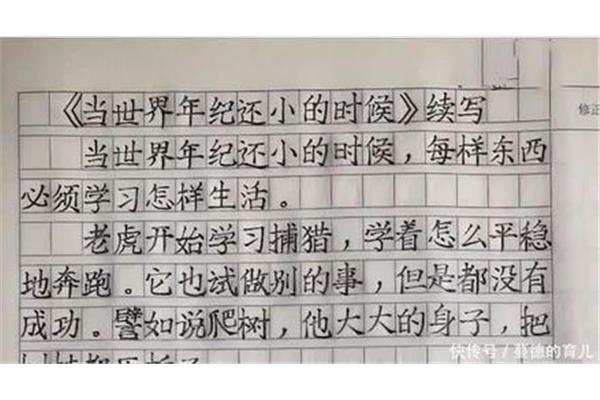 《当世界年纪还小的时候》续写
修正
当世界年纪还小的时候，每样东西
必须学习怎样生活。
老虎开始学习捕猎，学着怎么平稳
地奔跑。它也试做别的事，但是都没有
成功。譬如说爬树，他大大的身子，把
快传号／蔓德的育儿